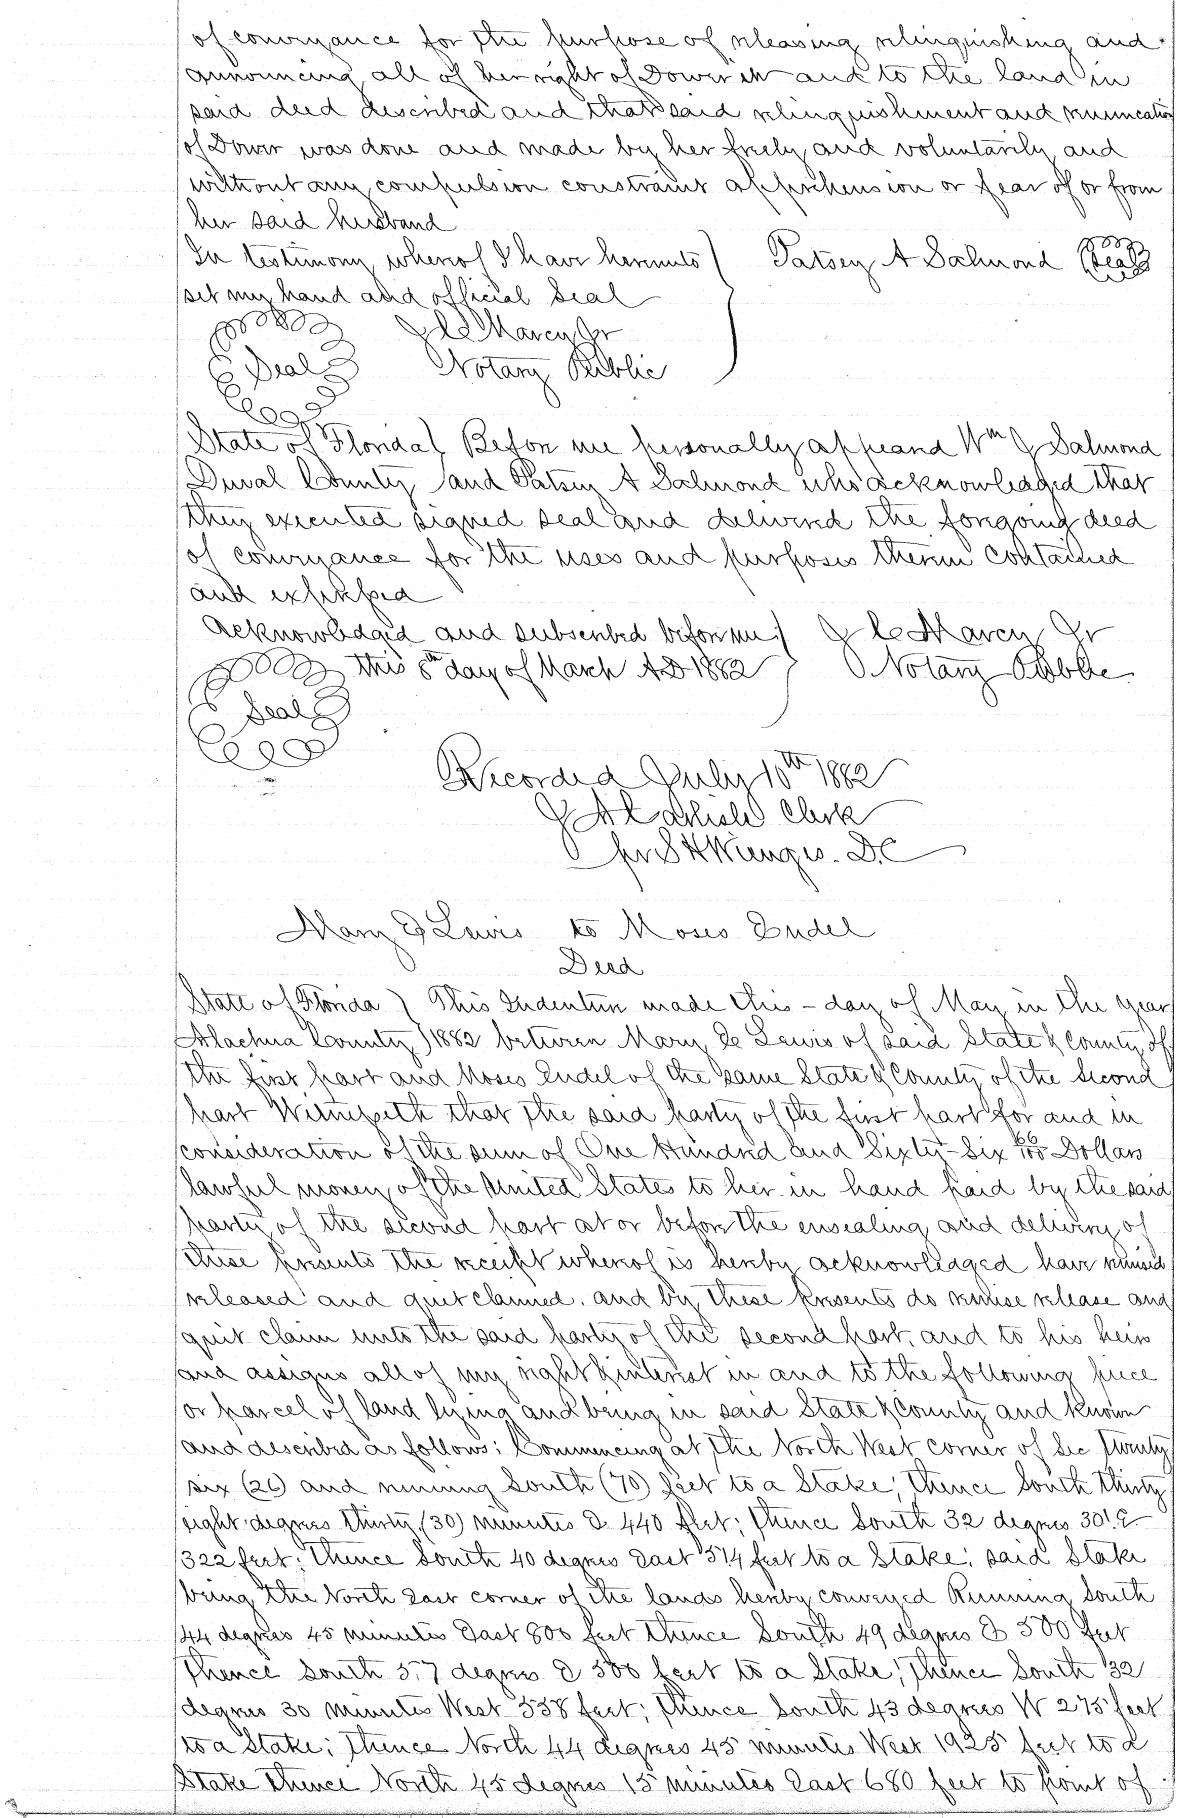 of conveyance for the purpose of releasing relinquishing and
announcing all of her right of Dower in and to the land in
said deed described and that said relinquishment and renunciation
of Dower was done and made by her freely and voluntarily and
without any compulsion constraint apprehension or fear of or from
her said husband
In testimony whereof I have hereunto ) Patsey A Salmond (Seal)
set my hand and official Seal
J C Marcy Jr
Seal Notary Public
State of Florida ) Before me personally appeared Wm J Salmond
Duval County ) and Patsey A Salmond who acknowledged that
they executed signed seal and delivered the foregoing deed
of conveyance for the uses and purposes therein contained
and expressed
Acknowledged and subscribed before me ) J C Marcy Jr
this 8th day of March AD 1882 ) Notary Public
Seal
Recorded July 10th 1882
J A Carlisle Clerk
pr S H Wienges. D.C
Mary E Lewis to Moses Endel
Deed
State of Florida ) This Indenture made this - day of May in the year
Alachua County ) 1882 between Mary E Lewis of said State & County of
the first part and Moses Endel of the same State & County of the Second
part Witnesseth that the said party of the first part for and in
consideration of the sum of One Hundred and Sixty-Six 66/100 Dollars
lawful money of the United States to her in hand paid by the said
party of the second part at or before the ensealing and delivery of
these presents the receipt whereof is hereby acknowledged have remised
released and quit claimed. and by these presents do remise release and
quit claim unto the said party of the second part, and to his heirs
and assigns all of my right & interest in and to the following piece
or parcel of land lying and being in said State & County and known
and described as follows: Commencing at the North West corner of Sec Twenty
six (26) and running South (70) feet to a Stake; thence South thirty
eight degrees thirty (30) minutes E 440 feet; thence South 32 degrees 30' E
322 feet; thence South 40 degrees East 514 feet to a Stake; said Stake
being the North East corner of the lands hereby conveyed Running South
44 degrees 45 minutes East 800 feet thence South 49 degrees E 500 feet
thence South 57 degrees E 500 feet to a Stake; thence South 32
degrees 30 minutes West 558 feet; thence South 43 degrees W 275 feet
to a Stake; thence North 44 degrees 45 minutes West 1925 feet to a
Stake thence North 45 degrees 15 minutes East 680 feet to point of